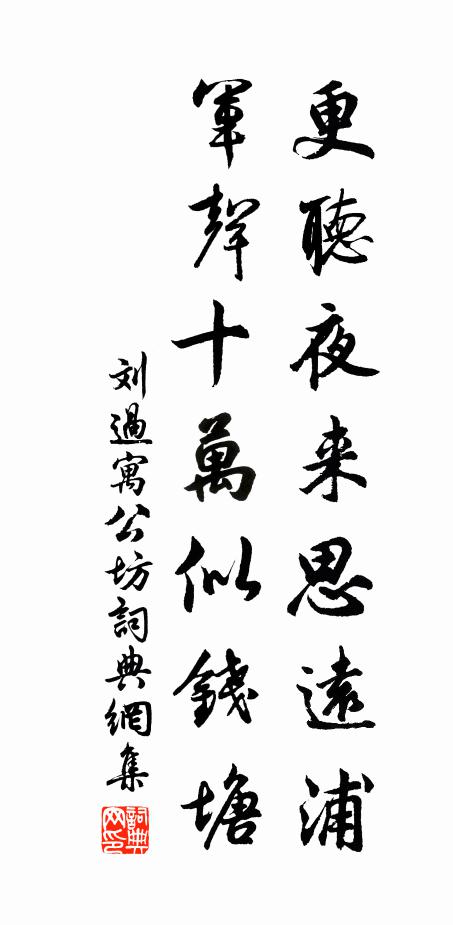 更聽夜来思遠浦
軍聲十萬似錢塘
刘過寓公坊詞典網集
詞典网印